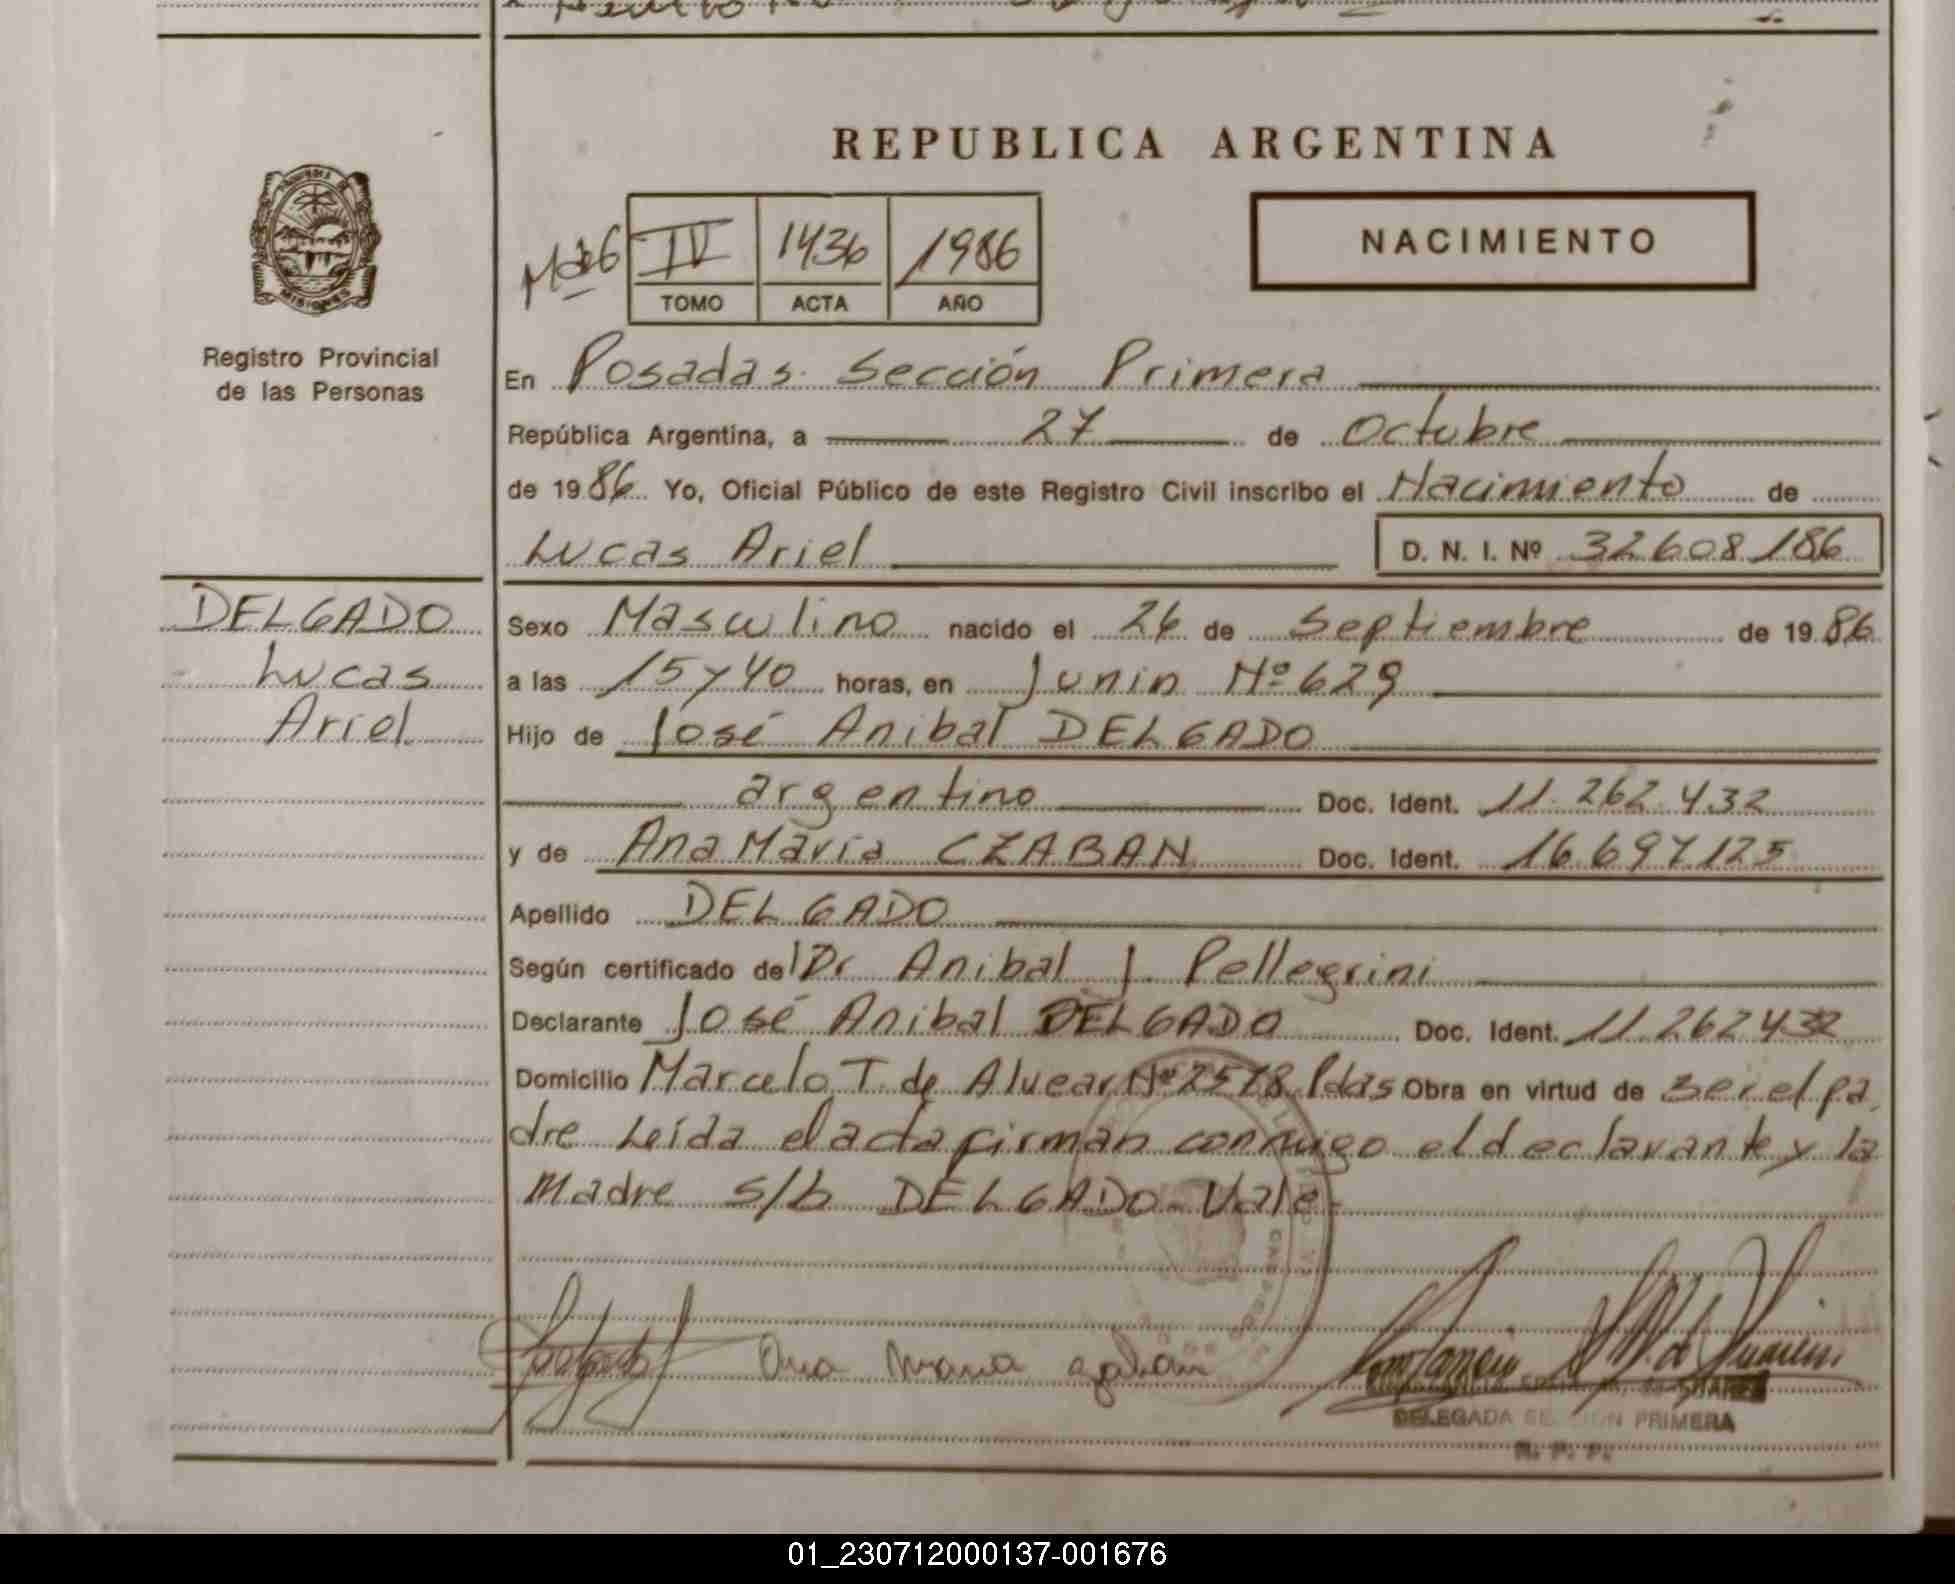 REPUBLICA ARGENTINA
PROVINCIA DE
MISIONES
Registro Provincial
de las Personas
IV 1436 1986
TOMO ACTA AÑO
NACIMIENTO
En Posadas Sección Primera
República Argentina, a 27 de Octubre
de 1986 Yo, Oficial Público de este Registro Civil inscribo el Nacimiento de
Lucas Ariel D. N. I. Nº 32608186
DELGADO
Lucas
Ariel
Sexo Masculino nacido el 26 de Septiembre de 1986
a las 15 y 40 horas, en Junin Nº 629
Hijo de José Anibal DELGADO
argentino Doc. Ident. 11.262.432
y de Ana Maria CZABAN Doc. Ident. 16.697.125
Apellido DELGADO
Según certificado del Dr Anibal J. Pellegrini
Declarante José Anibal DELGADO Doc. Ident. 11.262432
Domicilio Marcelo T. de Alvear Nº 2578 Pdas Obra en virtud de ser el pa
dre Leída el acta firman conmigo el declarante y la
Madre s/b DELGADO Vale-
Ana Maria
DELEGADA SECCION PRIMERA
R. P. P.
01_230712000137-001676